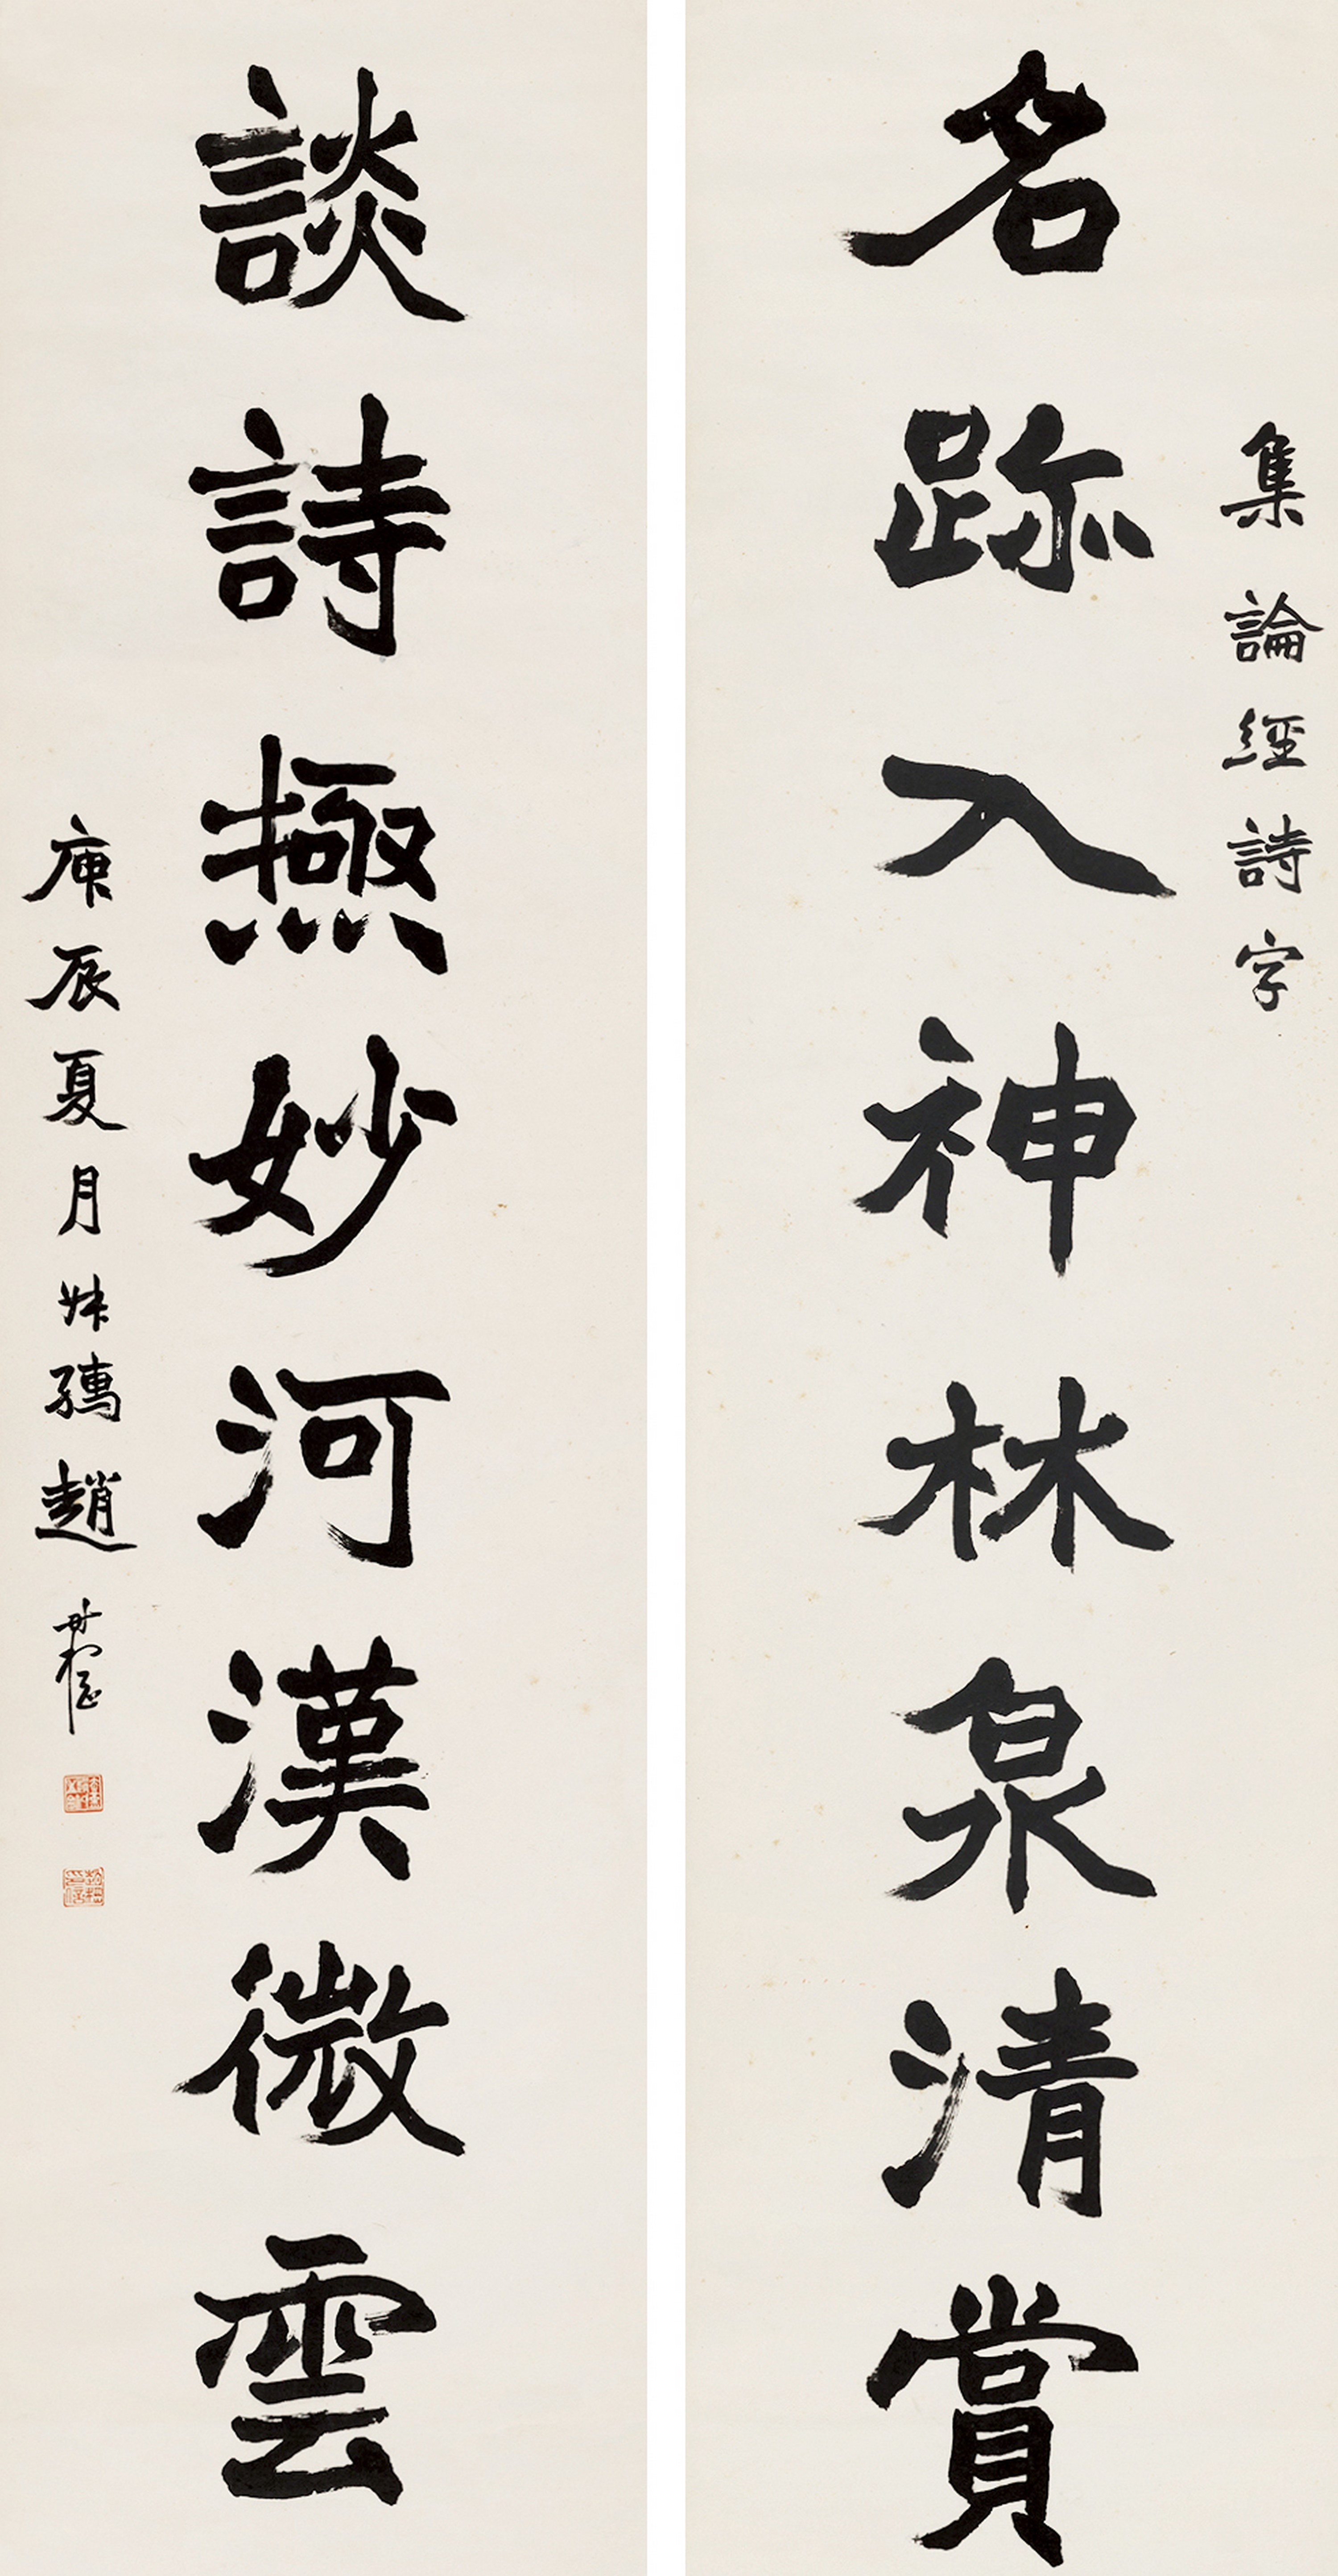 集論經詩字
名跡入神林泉清賞
談詩極妙河漢微雲
庚辰夏月叔孺趙時棡